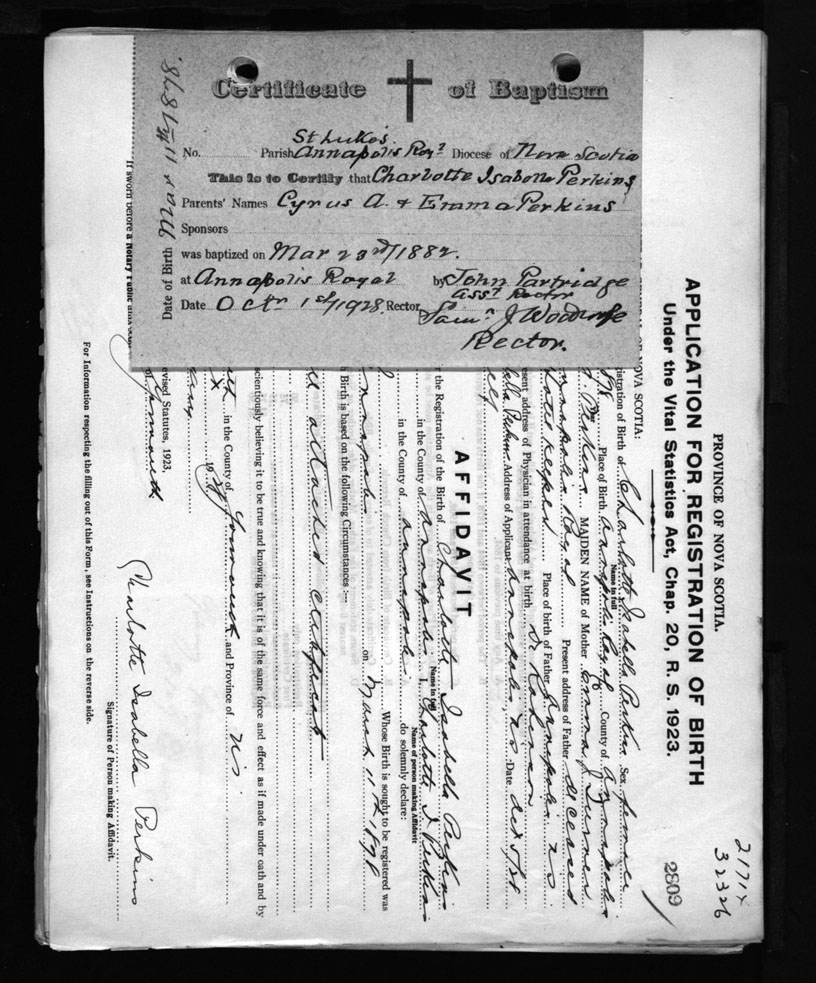 Certificate of Baptism
St Luke's
No. Parish Annapolis Royl Diocese of Nova Scotia
This is to Certify that Charlotte Isabella Perkins
Parents' Names Cyrus A. & Emma Perkins
Sponsors
was baptized on Mar 23rd/1882.
at Annapolis Royal by John Partridge
Asst Rector
Date Octr 1st/1928 Rector Saml J Woodroofe
Rector.
Date of Birth March 11th 1878.
2171X
32326
2809
PROVINCE OF NOVA SCOTIA.
APPLICATION FOR REGISTRATION OF BIRTH
Under the Vital Statistics Act, Chap. 20, R. S. 1923.
OF NOVA SCOTIA:
istration of Birth of Charlotte Isabella Perkins Sex female
Name in full
Place of Birth Annapolis Royal County of Annapolis
Perkins MAIDEN NAME of Mother Emma J
Annapolis Royal Present address of Father deceased
Place of birth of Father Annapolis NS
sent address of Physician in attendance at birth Dr Robinson
Perkins Address of Applicant Annapolis, NS Date
self
AFFIDAVIT
r the Registration of the Birth of Charlotte Isabella Perkins
Name in full
in the County of Annapolis I, Charlotte I Perkins
Name of person making Affidavit
in the County of Annapolis do solemnly declare:
Whose Birth is sought to be registered was
Annapolis on March 11th 1878
h Birth is based on the following Circumstances:—
attached certificate
scientiously believing it to be true and knowing that it is of the same force and effect as if made under oath and by
in the County of Yarmouth and Province of NS
19
evised Statutes, 1923,
of Yarmouth
Charlotte Isabella Perkins
Signature of Person making Affidavit.
If sworn before a Notary Public
For Information respecting the filling out of this Form, see Instructions on the reverse side.